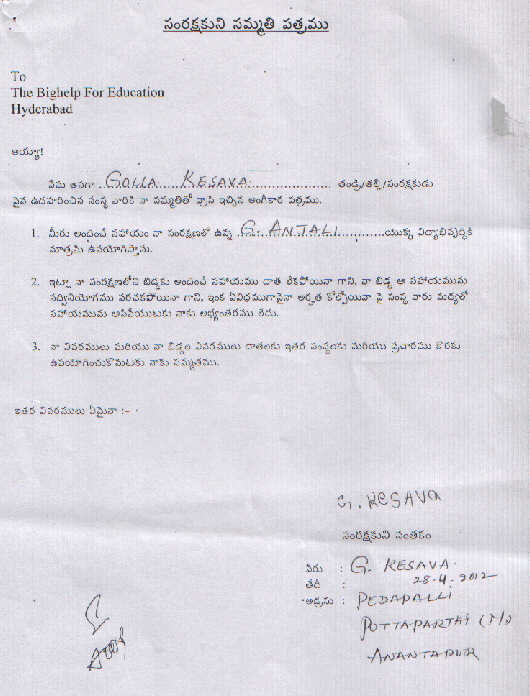 సంరక్షకుని సమ్మతి పత్రము
To
The Bighelp For Education
Hyderabad
అయ్యా!
నేను అనగా GOLLA KESAVA తండ్రి/తల్లి/సంరక్షకుడు
పైన ఉదహరించిన సంస్థ వారికి నా సమ్మతితో వ్రాసి ఇచ్చిన అంగీకార పత్రము.
1. మీరు అందించే సహాయం నా సంరక్షణలో ఉన్న G. ANJALI యొక్క విద్యాభివృద్ధికి
మాత్రమే ఉపయోగిస్తాను.
2. ఇట్లా నా సంరక్షణలోని బిడ్డకు అందించే సహాయము దాత లేకపోయినా గాని, నా బిడ్డ ఆ సహాయమును
సద్వినియోగము పరచకపోయినా గాని, ఇంక ఏవిధముగానైనా అర్హత కోల్పోయినా పై సంస్థ వారు మధ్యలో
సహాయమును ఆపివేయుటకు నాకు అభ్యంతరము లేదు.
3. నా వివరములు మరియు నా బిడ్డల వివరములు దాతలకు ఇతర సంస్థలకు మరియు ప్రచారము కొరకు
ఉపయోగించుకొనుటకు నాకు సమ్మతము.
ఇతర వివరములు ఏమైనా :-
G. KESAVA
సంరక్షకుని సంతకం
పేరు : G. KESAVA.
తేది : 28-4-2012
అడ్రసు : PEDAPALLI
PUTTAPARTHI (M)
ANANTAPUR